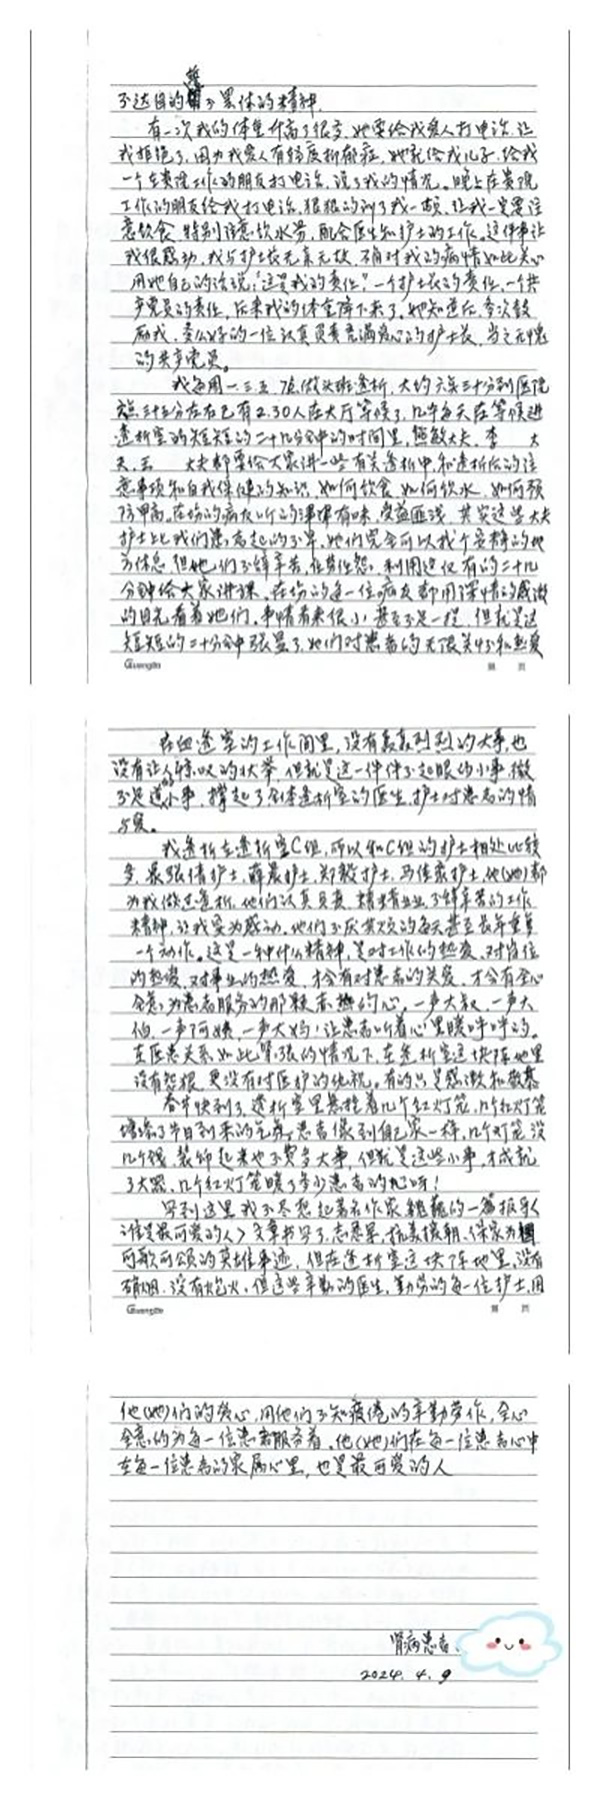 不达目的誓不罢休的精神.
有一次我的体重升高了很多,她要给我爱人打电话,让
我拒绝了,因为我爱人有轻度抑郁症,她就给我儿子,给我
一个在贵院工作的朋友打电话,说了我的情况。晚上在贵院
工作的朋友给我打电话,狠狠的训了我一顿,让我一定要注
意饮食,特别注意饮水等,配合医生和护士的工作。这件事让
我很感动,我与护士长无亲无故,
用她自己的话说:"这是我的责任"一个护士长的责任,一个共
产党员的责任,后来我的体重降下来了。她知道后,多次鼓
励我,多么好的一位认真负责充满爱心的护士长,当之无愧
的共产党员。
我每周一三五,做头班透析,大约六点三十分到医院
三十五分左右已有2.30人在大厅等候了,几乎每天在等候进
透析室的短短的二十几分钟的时间里,熊敏大夫,李 大
夫,王 大夫都要给大家讲一些有关透析中,和透析后的注
意事项和自我保健的知识,如何饮食,如何饮水,如何预
防甲高。在场的病友听的津津有味,受益匪浅,其实这些大夫
护士比我们患者起的还早,她们完全可以找个安静的地
方休息,但她们不辞辛苦,任劳任怨,利用这仅有的二十几
分钟给大家讲课,在场的每一位病友都用深情的感激
的目光看着她们,事情看来很小,甚至不足一提,但就是这
短短的二十分钟张显了,她们对患者的无限关怀和热爱
Guangbo 第 页
在血透室的工作间里,没有轰轰烈烈的大事,也
没有让人惊叹的壮举,但就是这一件件不起眼的小事,微
不足道的小事,撑起了全体透析室的医生,护士对患者的情
与爱。
我透析在透析室C组,所以和C组的护士相处比较
多,张倩护士,薛晨护士,郑毅护士,马佳豪护士,他(她)都
为我做过透析,他们认真负责,精精业业,不辞辛苦的工作
精神,让我深为感动,他们不厌其烦的每天甚至长年重复
一个动作。这是一种什么精神,是对工作的热爱,对岗位
的热爱,对事业的热爱,才会有对患者的关爱,才会有全心
全意为患者服务的那颗赤热的心,一声大叔,一声大
伯,一声阿姨,一声大妈!让患者听着心里暖呼呼的。
在医患关系如此紧张的情况下,在透析室这块阵地里
没有怨恨,更没有对医护的仇视。有的只是感激和敬慕
春节快到了,透析室里悬挂着几个红灯笼,几个红灯笼
增添了节日到来的气氛,患者像到自己家一样,几个灯笼没
几个钱,装饰起来也不费多大事,但就是这些小事,才成就
了大器,几个红灯笼暖了多少患者的心呀!
写到这里我不尽想起著名作家魏巍的一篇报导<
谁是最可爱的人>文章书写了,志愿军,抗美援朝,保家为国
可歌可颂的英雄事迹,但在透析室这块阵地里,没有
硝烟,没有炮火,但这些辛勤的医生,勤劳的每一位护士,用
Guangbo 第 页
他(她)们的爱心,用他们不知疲倦的辛勤劳作,全心
全意的为每一位患者服务着,他(她)们在每一位患者心中
在每一位患者的家属心里,也是最可爱的人
肾病患者:
2024.4.9